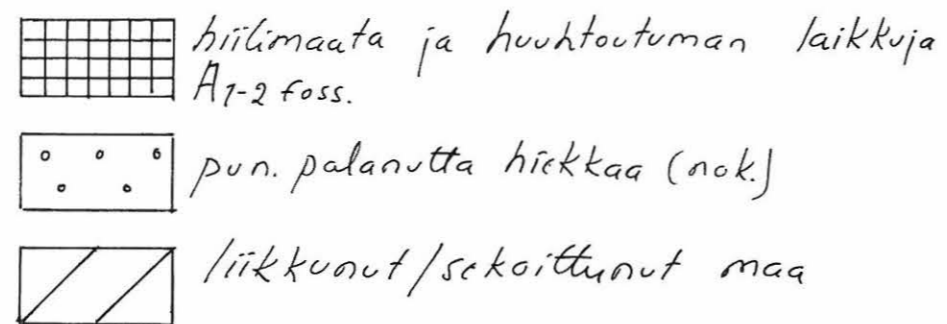 hiilimaata ja huuhtoutuman laikkuja
A1-2 foss.
pun. palanutta hiekkaa (nok.)
liikkunut/sekoittunut maa